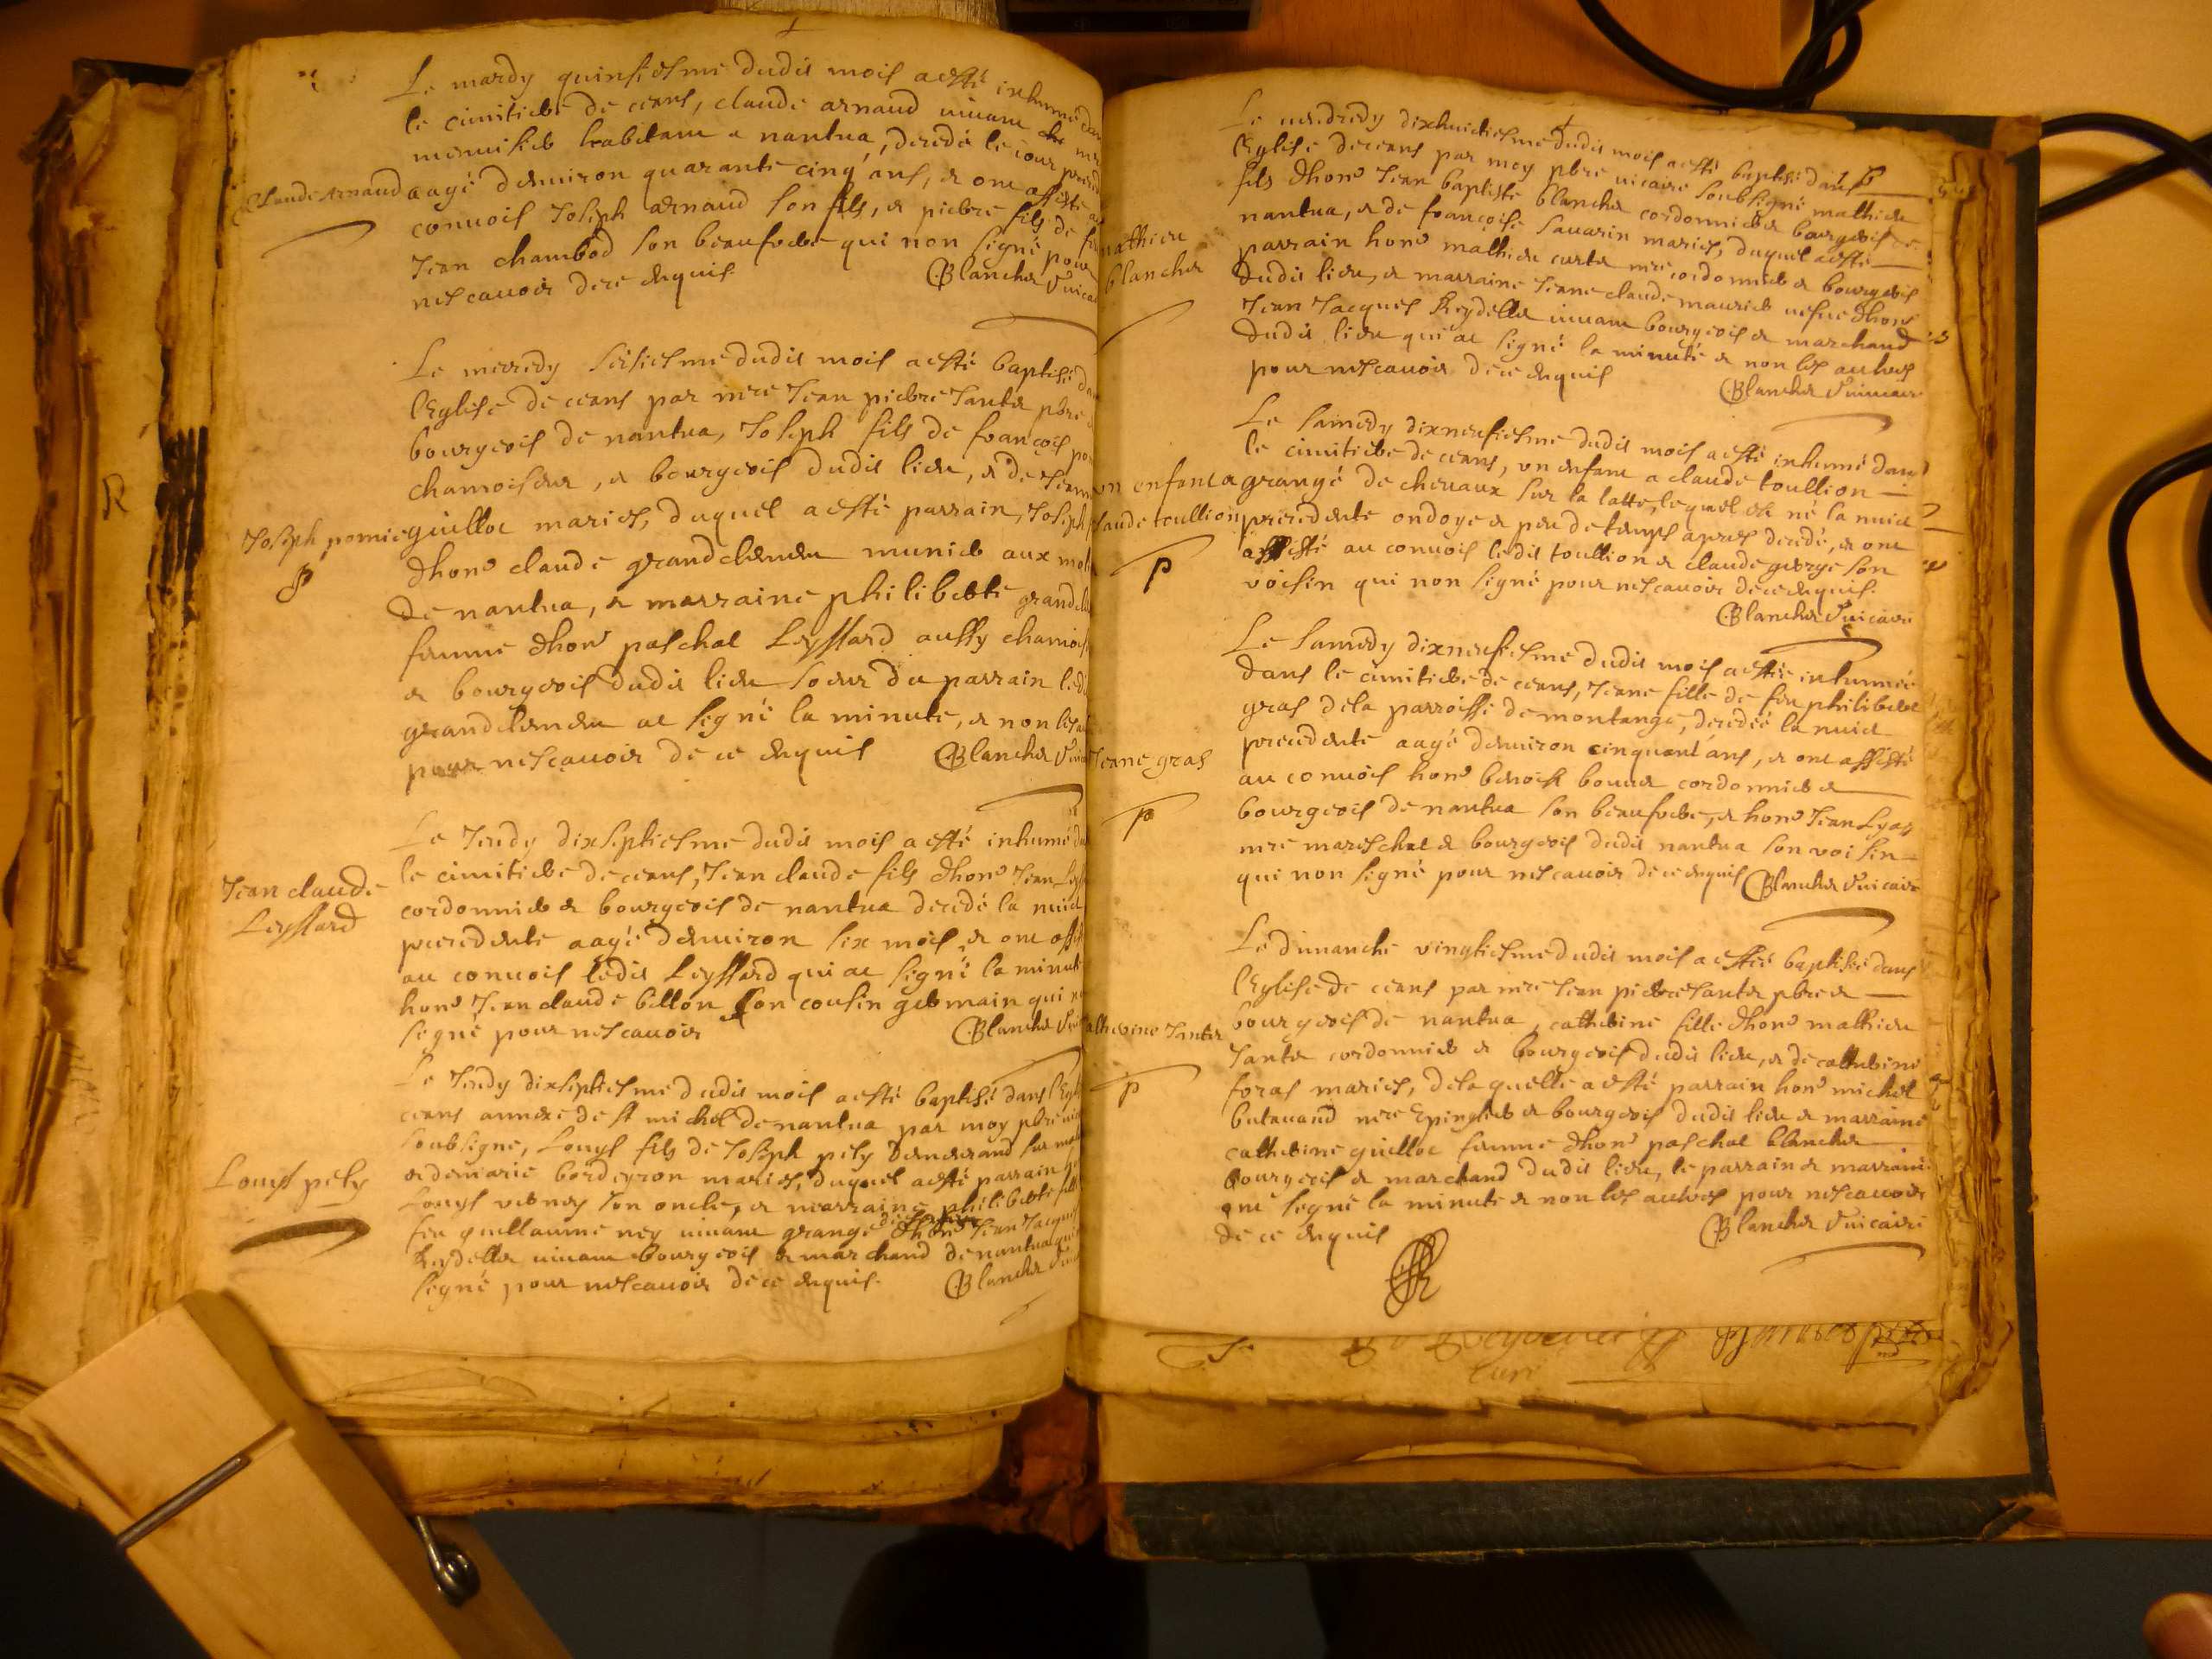 Le mardy quinsiesme dudit mois a esté inhumé dans
le cimitiere de ceans, claude arnaud vivant
menusier habitant a nantua, decedé le jour preced
Claude Arnaud
aagé denviron quarante cinq ans, et ont assisté au
convois Joseph arnaud son fils, et pierre fils de feu
Jean chambod son beaufrere qui non signé pour
nescavoir de ce enquis. Blanchet vicai
Le mecredy seisiesme dudit mois a esté baptisé dan
l'Eglise de ceans par mre Jean pierre Jantet pbre
bourgeois de nantua, Joseph fils de françois
chamoiseur, et bourgeois dudit lieu, et de Jeanne
Joseph pomie
guillot mariés, duquel a esté parrain, Joseph
dhon. claude grandclement munier aux mol
de nantua, et marraine philiberte grandcle
femme dhon. paschal Leyssard aussy chamois
et bourgeois dudit lieu soeur du parrain ledi
grandclemen at signé la minute, et non les au
pour nescavoir de ce enquis Blanchet Vicai
Le Jeudy dixseptiesme dudit mois a esté inhumé da
Jean claude
Leyssard
le cimitiere de ceans, Jean claude fils dhon. Jean Leyss
cordonnier et bourgeois de nantua decedé la nuict
precedente aagé denviron six mois, et ont assist
au convois ledit Leyssard qui at signé la minute
hon. Jean claude billon son cousin germain qui n
signé pour nescavoir Blanchet Vicai
Le Jeudy dixseptiesme dudit mois a esté baptisé dans l'Egli
ceans annexe de st michel de nantua par moy pbre vic
soubsigné, Louys fils de Joseph pety demeurand sur mol
Louys pety
et de marie bordeyron mariés, duquel a esté parrain
Louys verney son oncle, et marraine philiberte fille
feu guillaume ney vivant granger dhon. Jean Jacques
Reydellet vivant bourgeois et marchand de nantua qui
signé pour nescavoir de ce enquis. Blanchet Vic
Le vendredy dixhuictiesme dudit mois a esté baptisé dans
l'Eglise de ceans par moy pbre vicaire soubsigné mathieu
fils dhon. Jean baptiste blanchet cordonnier et bourgeois de
mathieu
blanchet
nantua, et de françoise savarin mariés, duquel a esté
parrain hon. mathieu curtet mre cordonnier et bourgeois
dudit lieu, et marraine Jeane claude maurier vefve dhon.
Jean Jacques Reydellet vivant bourgeois et marchand
dudit lieu qui at signé la minute et non les autres
pour nescavoir de ce enquis Blanchet Vicaire
Le samedy dixneufiesme dudit mois a esté inhumé dans
le cimitiere de ceans, un enfant a claude toullion
un enfant a
claude toullion
grangé de chevaux sur la latte, lequel est né la nuict
precedente ondoyé et peu de temps apres decedé, et ont
assisté au convois ledit toullion et claude george son
voisin qui non signé pour nescavoir de ce enquis.
Blanchet Vicaire
Le samedy dixneufiesme dudit mois a estée inhumée
dans le cimitiere de ceans, Jeane fille de feu philibert
gras de la parroisse de montange, decedée la nuict
Jeane gras
precedente aagé denviron cinquant ans, et ont assisté
au convois hon. benoist bouvet cordonnier et
bourgeois de nantua son beaufrere, et hon. Jean Lyas
mre mareschal et bourgeois dudit nantua son voisin
qui non signé pour nescavoir de ce enquis Blanchet Vicaire
Le dimanche vingtiesme dudit mois a estée baptisée dans
l'Eglise de ceans par mre Jean pierre Jantet pbre et
catherine Jantet
bourgeois de nantua, catherine fille dhon. mathieu
Jantet cordonnier et bourgeois dudit lieu, et de catherine
foras mariés, de laquelle a esté parrain hon. michel
butavand mre Epinglier et bourgeois dudit lieu et marraine
catherine guillot femme dhon. paschal blanchet
bourgeois et marchand dudit lieu, le parrain et marraine
ont signé la minute et non les autres pour nescavoir
de ce enquis Blanchet Vicaire